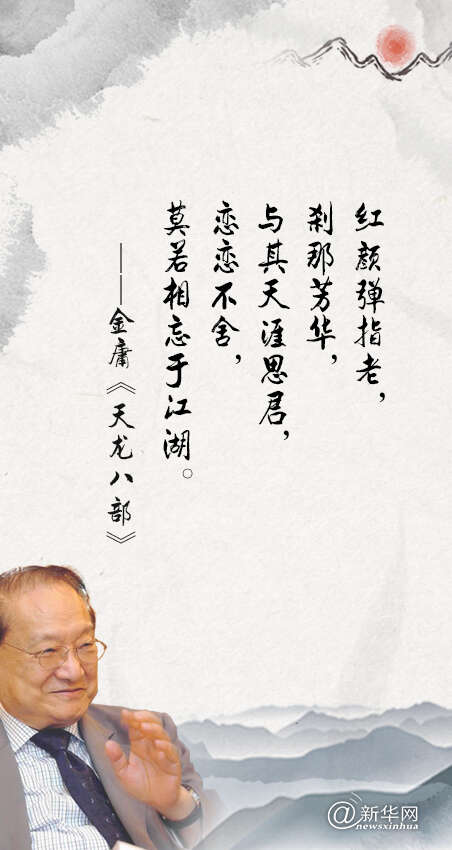 红颜弹指老，
刹那芳华，
与其天涯思君，
恋恋不舍，
莫若相忘于江湖。
——金庸《天龙八部》
@新华网
newsxinhua